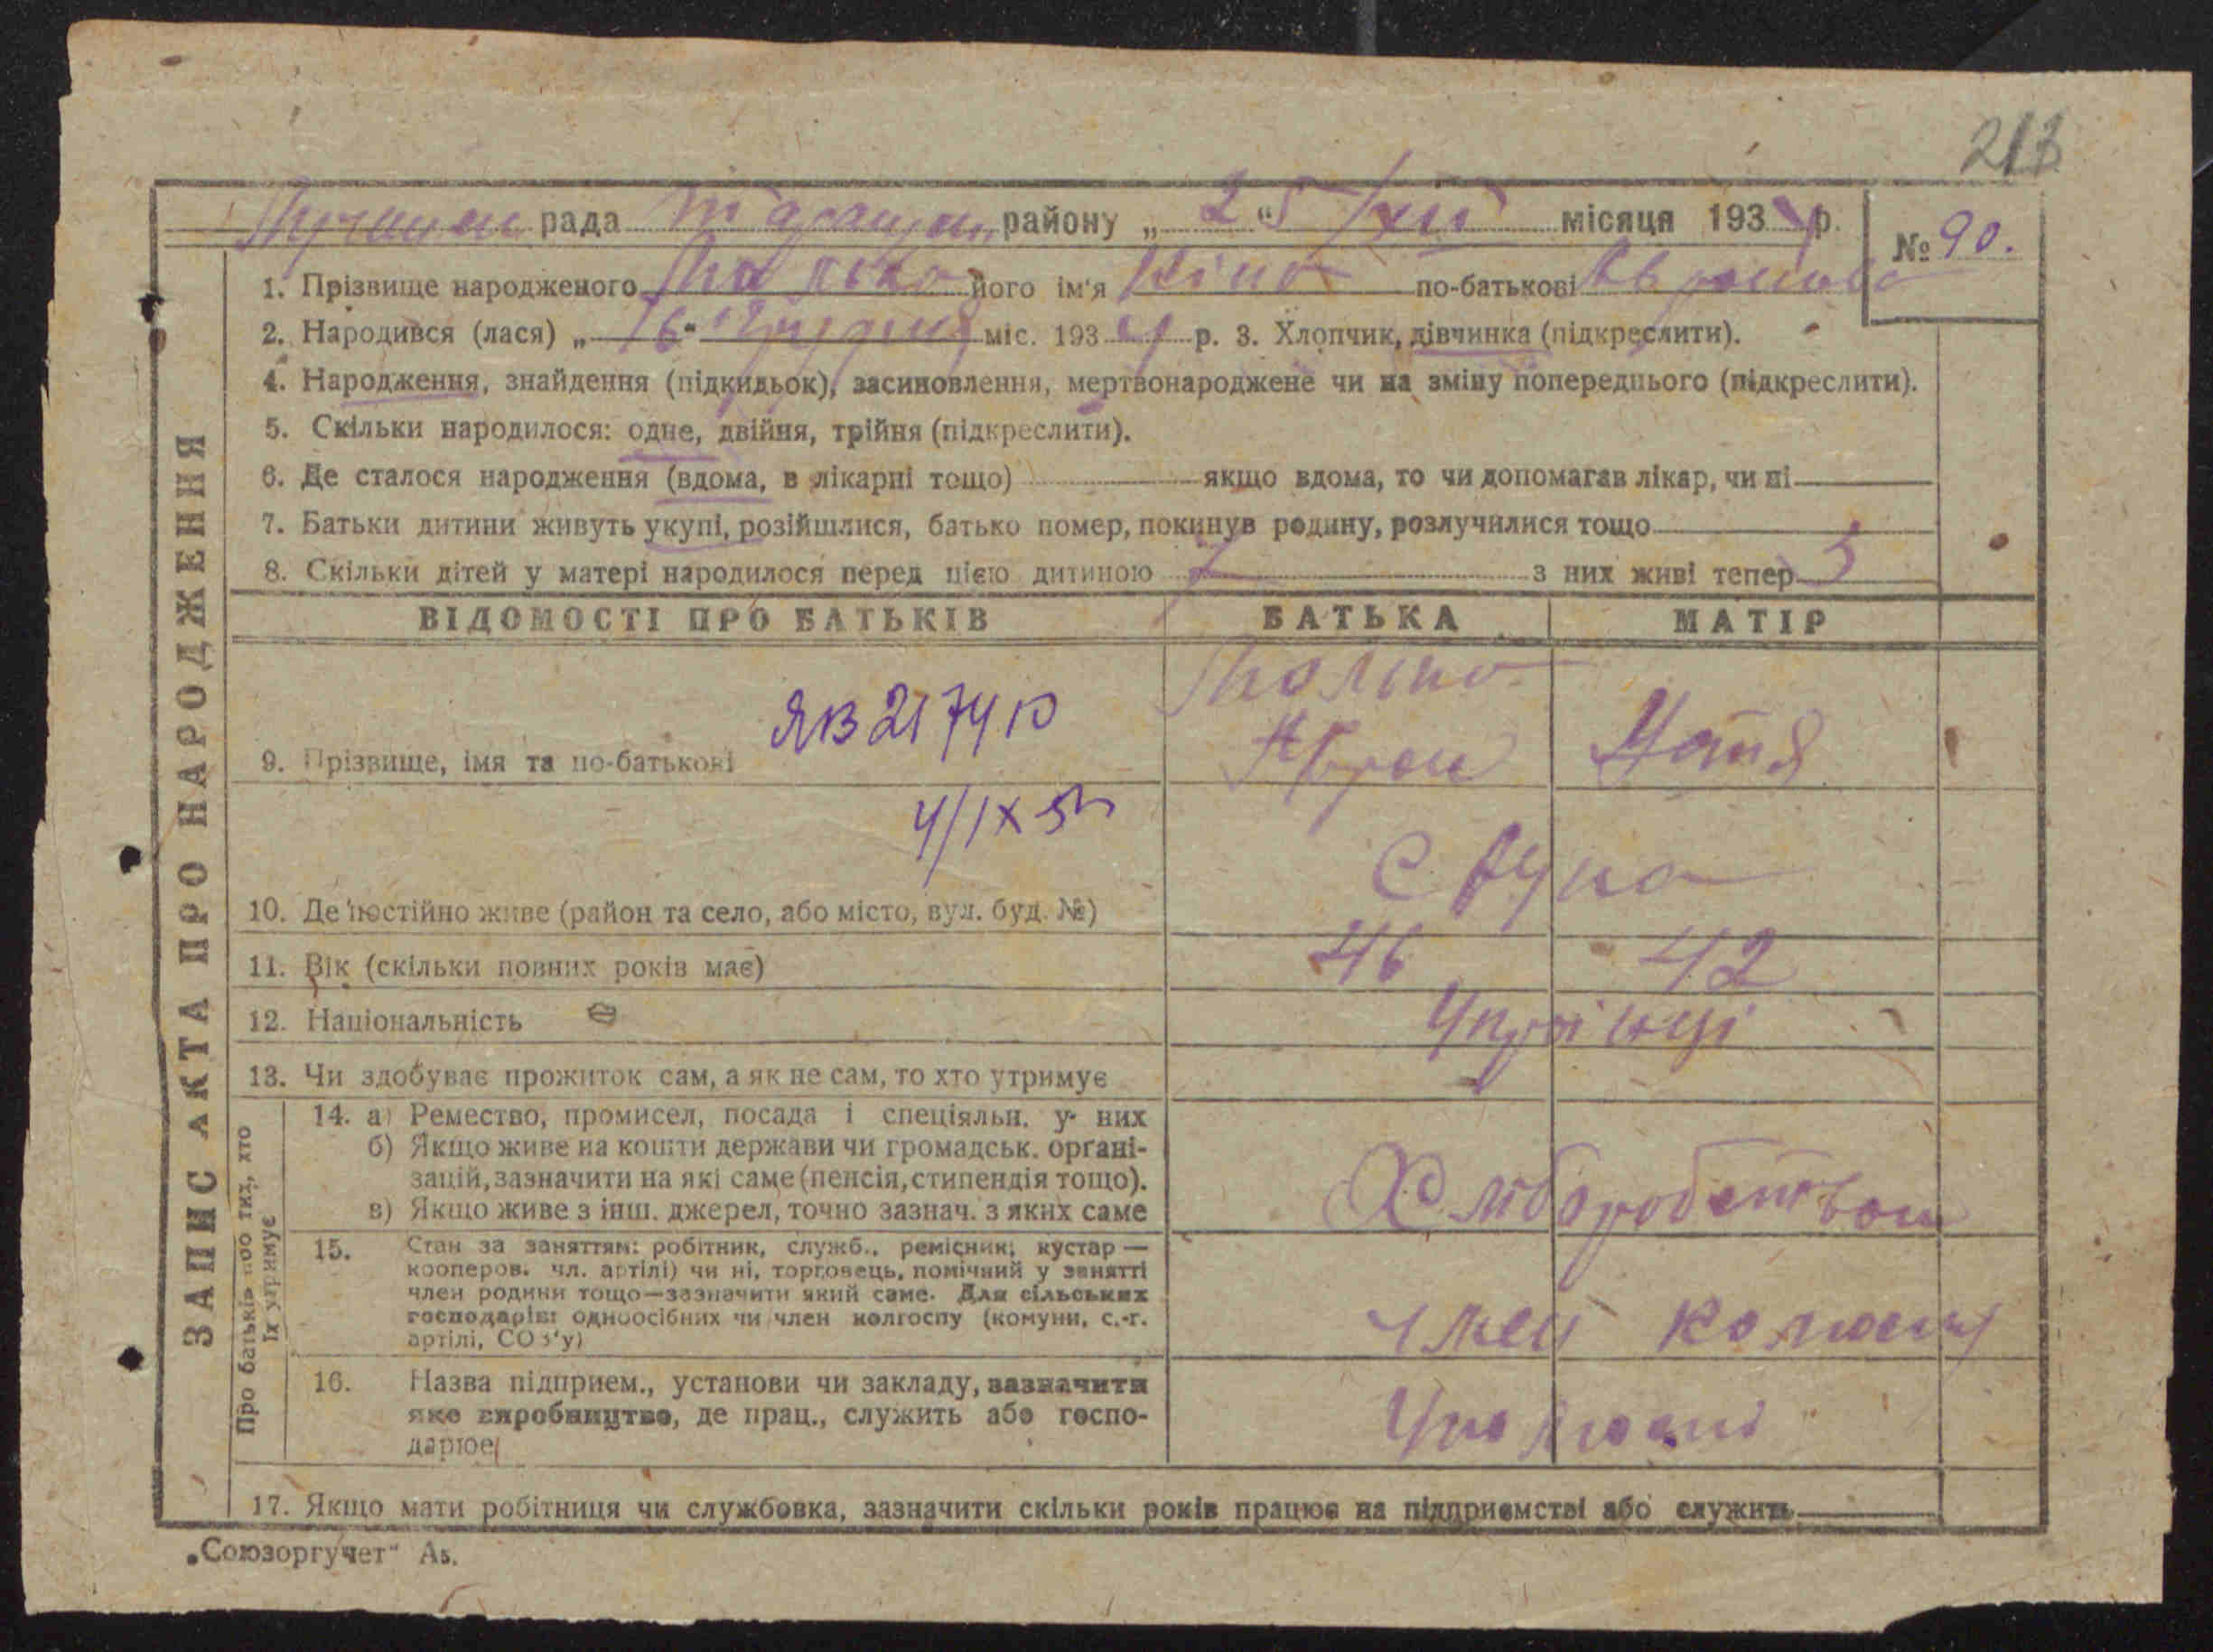 213
рада Таращан. району „ 25 “ /XII місяця 1934 р.
№ 90.
1. Прізвище народженого його ім'я Ніна по-батькові
2. Народився (лася) „ 16 “ грудня міс. 1934 р. 3. Хлопчик, дівчинка (підкреслити).
4. Народження, знайдення (підкидьок), засиновлення, мертвонароджене чи на зміну попереднього (підкреслити).
5. Скільки народилося: одне, двійня, трійня (підкреслити).
6. Де сталося народження (вдома, в лікарні тощо) якщо вдома, то чи допомагав лікар, чи ні
7. Батьки дитини живуть укупі, розійшлися, батько помер, покинув родину, розлучилися тощо
8. Скільки дітей у матері народилося перед цією дитиною 7 з них живі тепер 3
ЗАПИС АКТА ПРО НАРОДЖЕННЯ
ВІДОМОСТІ ПРО БАТЬКІВ БАТЬКА МАТІР
ЯВ 2174 10
9. Прізвище, імя та по-батькові
4/IX 5
10. Де постійно живе (район та село, або місто, вул. буд. №)
11. Вік (скільки повних років має) 46 42
12. Національність Українці
13. Чи здобуває прожиток сам, а як не сам, то хто утримує
Про батьків про тих, хто
їх утримує
14. а) Ремество, промисел, посада і спеціяльн. у них
б) Якщо живе на кошти держави чи громадськ. орґані-
зацій, зазначити на які саме (пенсія, стипендія тощо).
в) Якщо живе з інш. джерел, точно зазнач. з яких саме
Хліборобством
15. Стан за заняттям: робітник, служб., ремісник; кустар —
кооперов. чл. артілі) чи ні, торговець, помічний у занятті
член родини тощо—зазначити який саме. Для сільських
господарів: одноосібних чи член колгоспу (комуни, с.-г.
артілі, СОЗ'у)
член колгоспу
16. Назва підприєм., установи чи закладу, зазначити
яке виробництво, де прац., служить або госпо-
дарює
У колгоспі
17. Якщо мати робітниця чи службовка, зазначити скільки років працює на підприємстві або служить
„Союзоргучет“ А5.